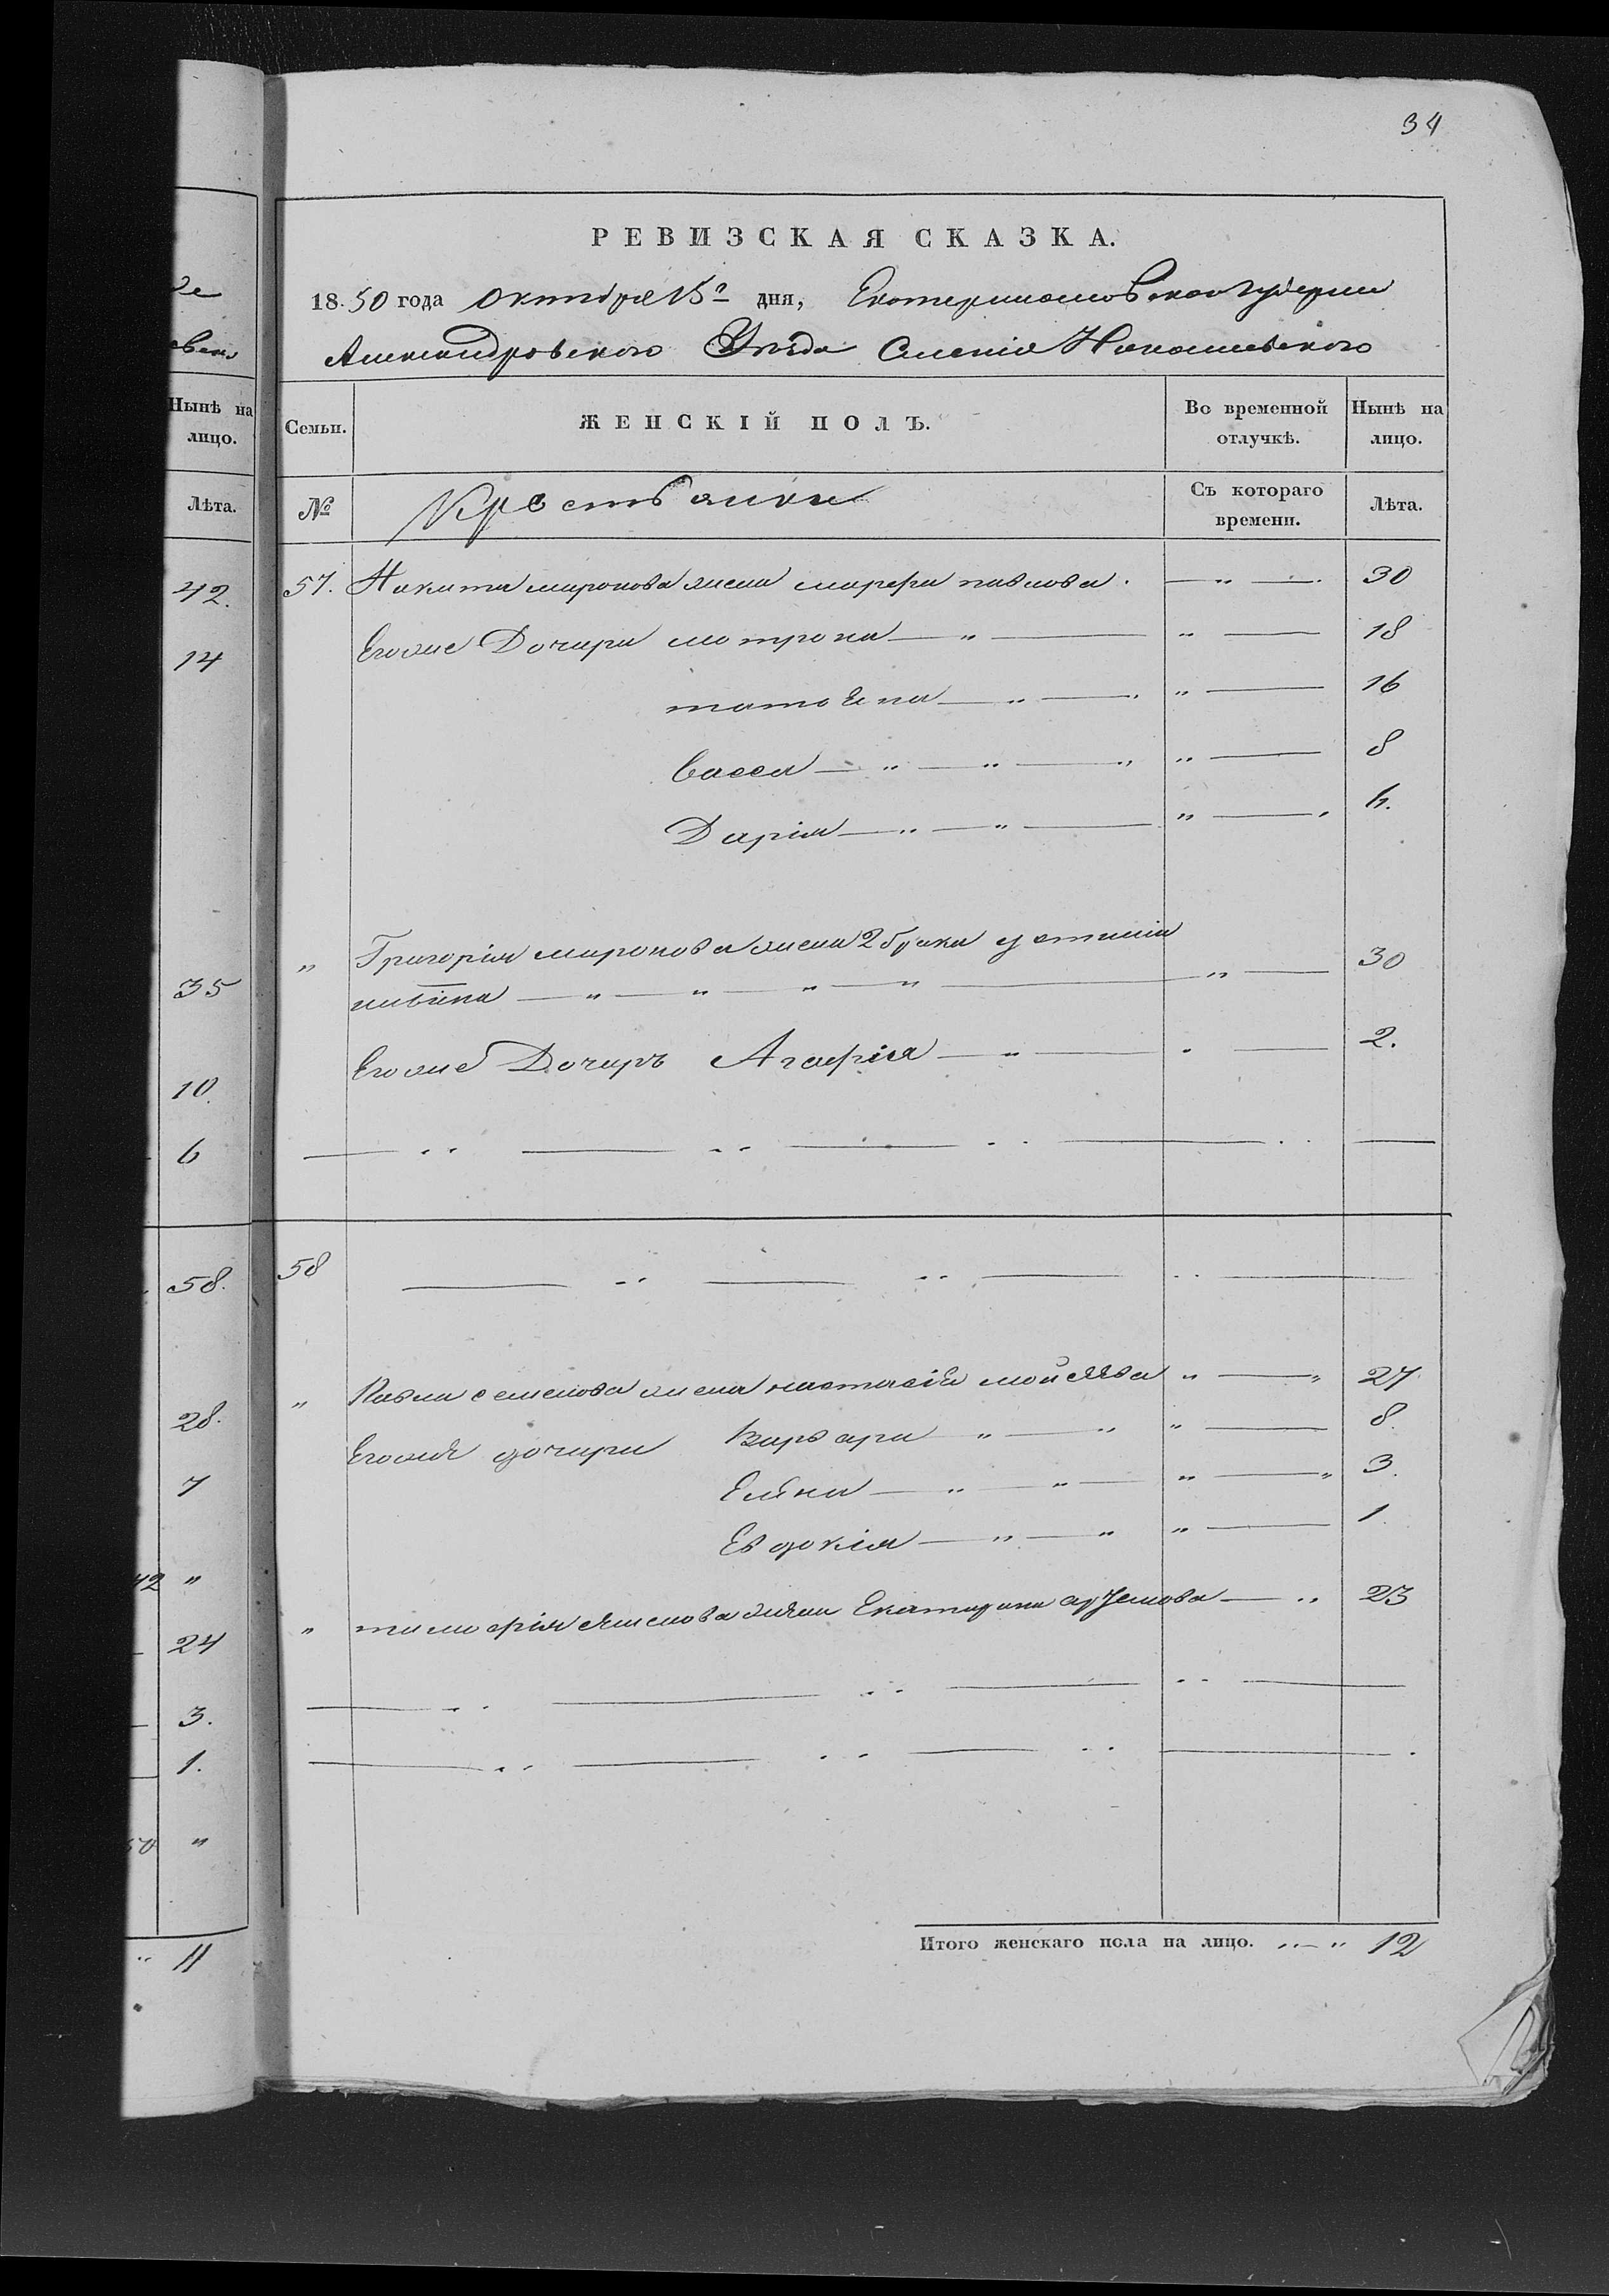 34
РЕВИЗСКАЯ СКАЗКА.
18 50 года октября 15го дня, Екатеринославской губернии
Александровского Уезда Селенiя Николаевского
Нынѣ на лицо.
Семьи.
ЖЕНСКІЙ ПОЛЪ.
Во временной отлучкѣ.
Нынѣ на лицо.
Лѣта.
№
Крестьянки
Съ котораго времени.
Лѣта.
42.
57. Никита миронова жена марфа павлова. — „ — 30
14
Егоже Дочери матрона — „ — „ — 18
татьяна — „ — „ „ — 16
васса — „ — „ — „ „ — 8
Дарiя — „ — „ — „ — „
35
„ Григорiя миронова жена 2 брака устинiя
— „ — „ — „ — „ — „ — 30
10.
Егоже Дочерь Агафiя — „ — „ — 2.
6
58.
58
28.
„ Павла семенова жена настасiя мойсѣева „ — „ 27.
7
Егоже дочери варвара „ — „ „ — 8.
Елена — „ — „ — „ — „ 3.
Евдокiя — „ — „ „ — 1.
42 „
24
„ тимофiя семенова жена Екатерина артемова — „ 23
3.
1.
50 „
„ 11
Итого женскаго пола на лицо. „ — „ 12